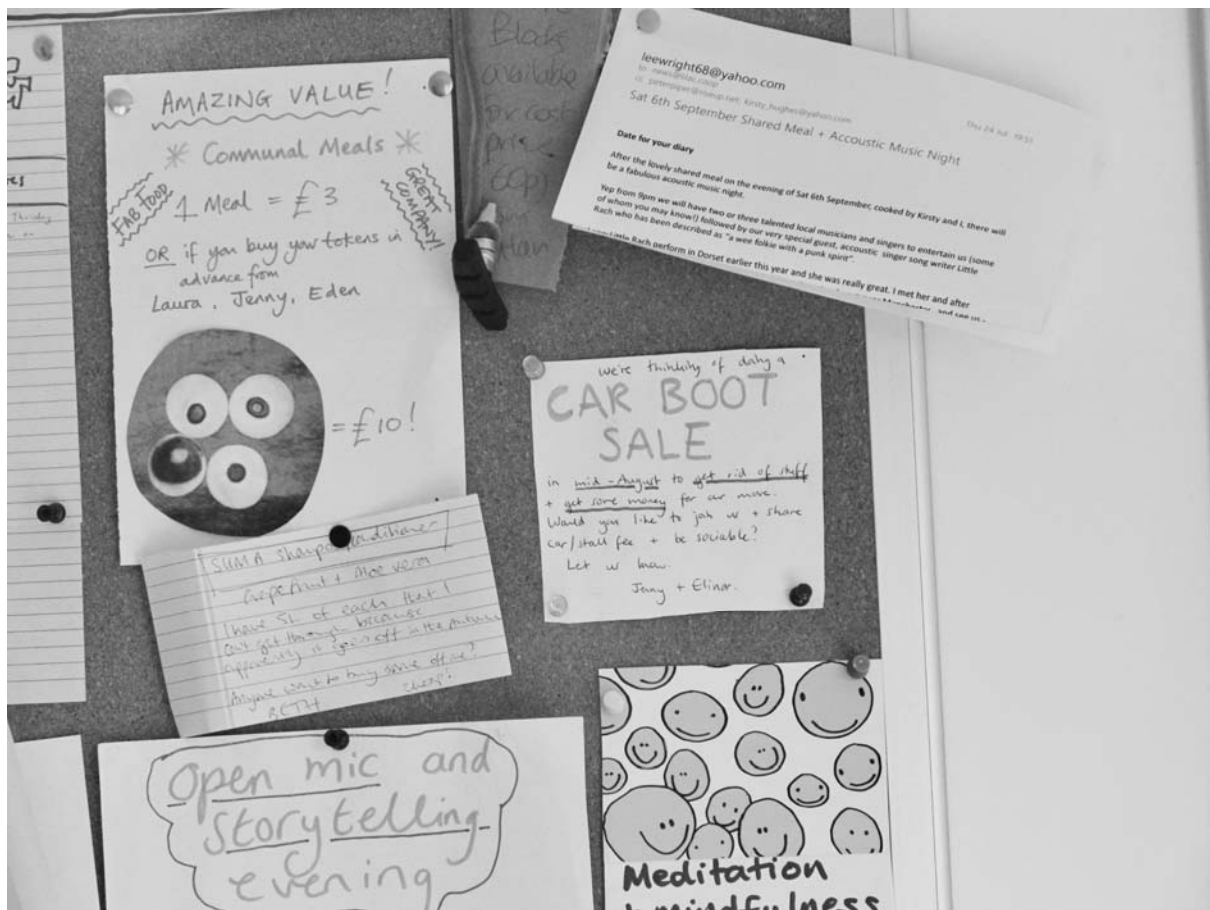 AMAZING VALUE!
Communal Meals
FAB FOOD
GREAT COMPANY!
1 Meal = £3
OR if you buy your tokens in
advance from
Laura, Jenny, Eden
= £10!
Blocks
available
for cost
price
60p
leewright68@yahoo.com
to news@
cc
kirsty_hughes@yahoo.com
Thu 24 Jul
Sat 6th September Shared Meal + Accoustic Music Night
Date for your diary
After the lovely shared meal on the evening of Sat 6th September, cooked by Kirsty and I, there will
be a fabulous acoustic music night.
Yep from 9pm we will have two or three talented local musicians and singers to entertain us (some
of whom you may know!) followed by our very special guest, accoustic singer song writer Little
Rach who has been described as "a wee folkie with a punk spirit".
Little Rach perform in Dorset earlier this year and she was really great. I met her and after
Manchester, and see us
we're thinking of doing a
CAR BOOT
SALE
in mid-August to get rid of stuff
+ get some money for our move.
Would you like to join us + share
car/stall fee + be sociable?
Let us know.
Jenny + Elinor.
SUMA shampoo conditioner
Grapefruit + Aloe vera
I have 5L of each that I
can't get through because
apparently it goes off in the
Anyone want to buy some off me?
cheap!
BETH
Open mic and
storytelling
evening
Meditation
mindfulness
Thursday